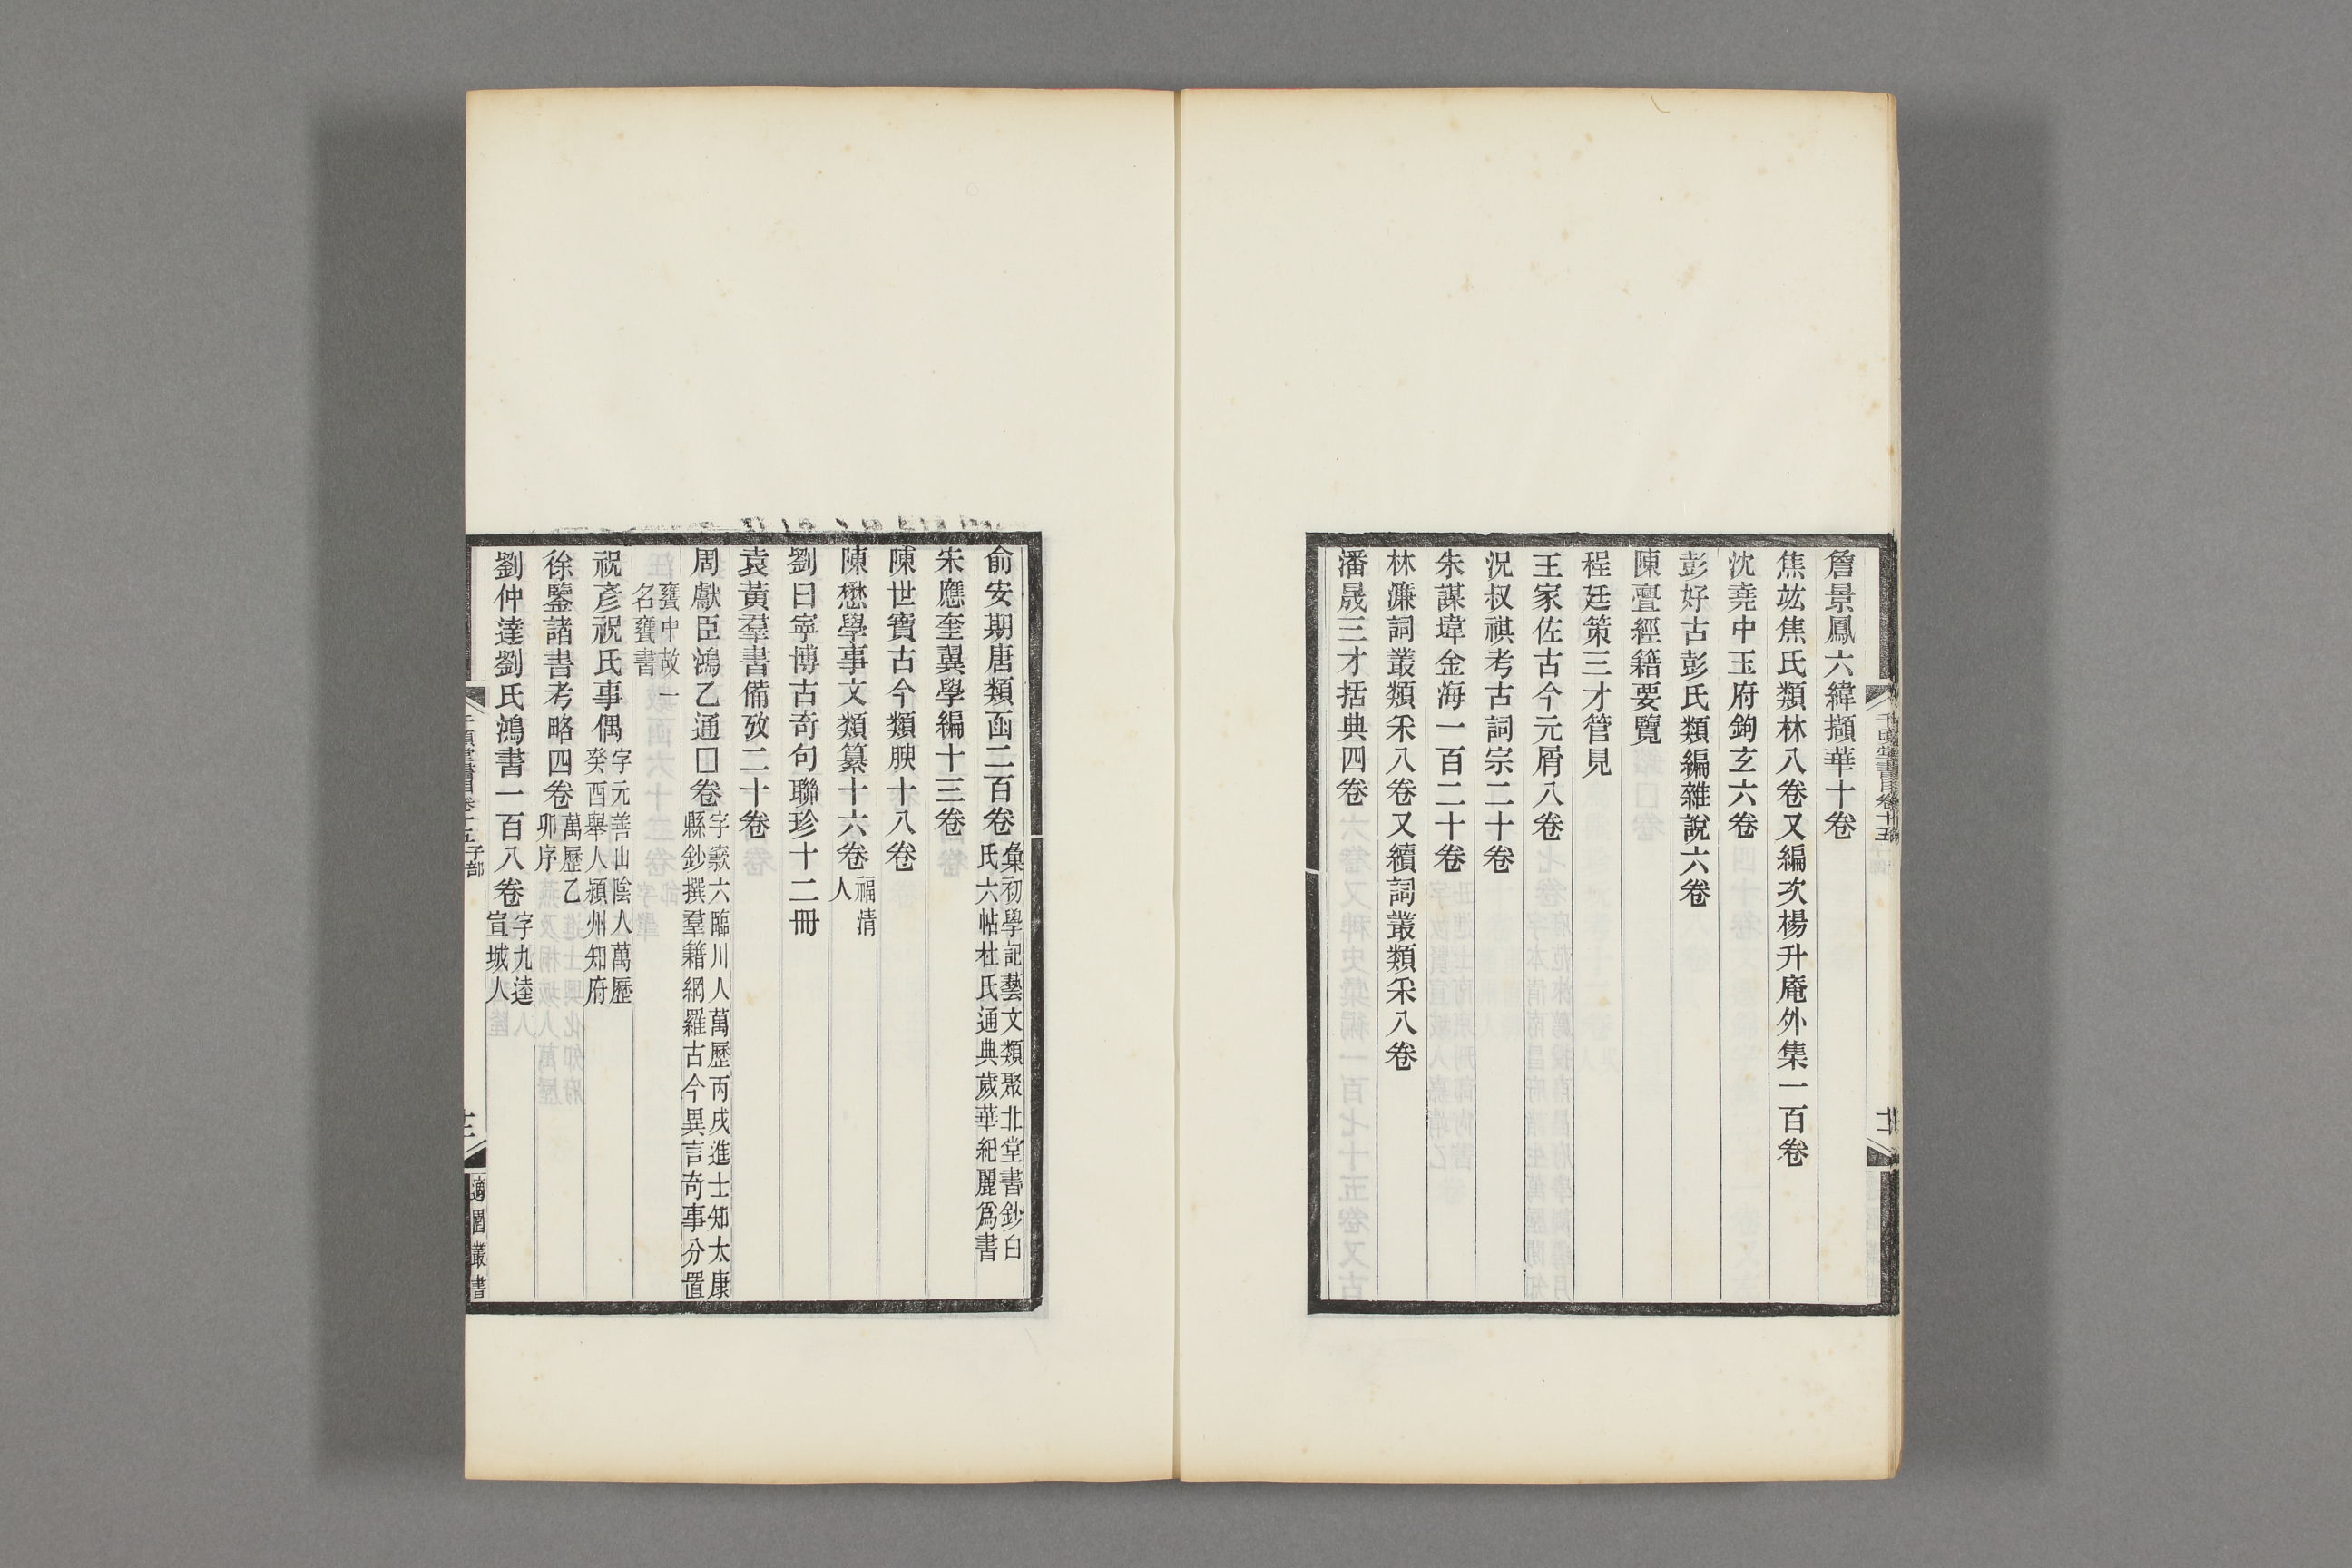 詹景鳳六緯擷華十卷
焦竑焦氏類林八卷又編次楊升庵外集一百卷
沈堯中玉府鉤玄六卷
彭好古彭氏類編雜說六卷
陳亶經籍要覽
程廷策三才管見
王家佐古今元屑八卷
況叔祺考古詞宗二十卷
朱謀㙔金海一百二十卷
林濂詞叢類采八卷又續詞叢類采八卷
潘晟三才括典四卷
俞安期唐類函二百卷彙初學記藝文類聚北堂書鈔白
氏六帖杜氏通典歲華紀麗爲書
朱應奎翼學編十三卷
陳世寶古今類腴十八卷
陳懋學事文類纂十六卷福清
人
劉曰寧博古奇句聯珍十二冊
袁黃羣書備攷二十卷
周獻臣鴻乙通囗卷字窾六臨川人萬歷丙戌進士知太康
縣鈔撰羣籍網羅古今異言奇事分置
甕中故一
名甕書
祝彥祝氏事偶字元善山陰人萬歷
癸酉舉人潁州知府
徐鑒諸書考略四卷萬歷乙
卯序
劉仲達劉氏鴻書一百八卷字九逵
宣城人
千頃堂書目卷十五子部
十二
適園叢書